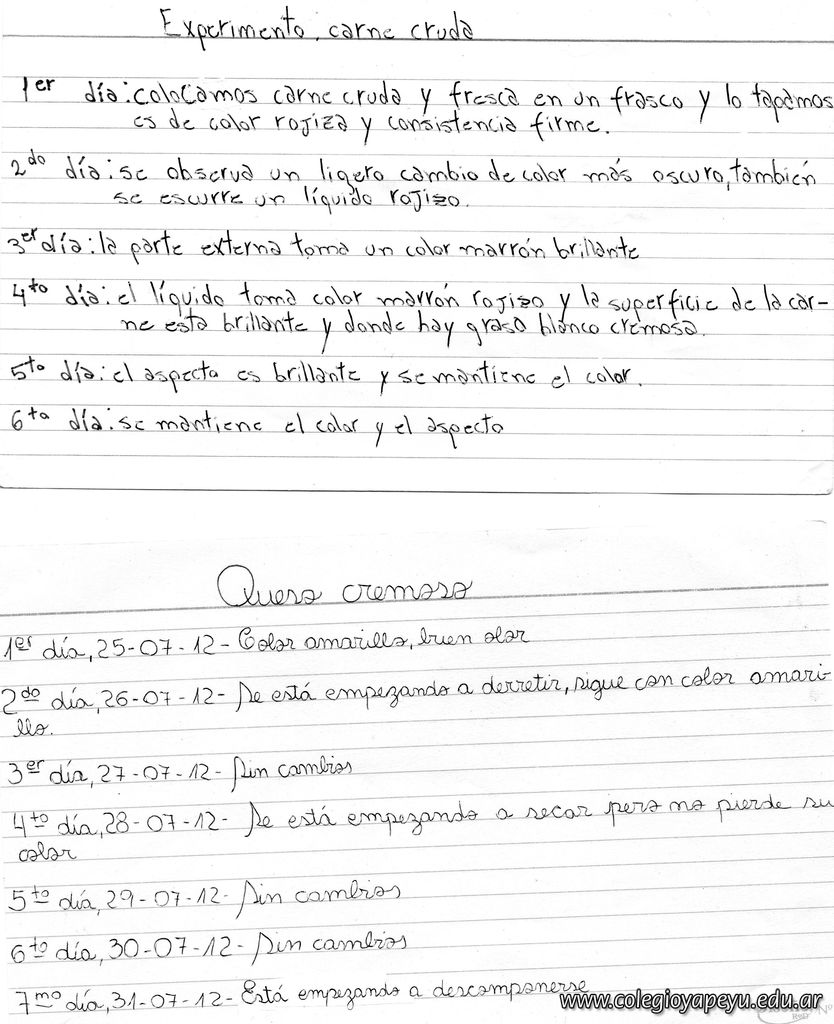 Experimento, carne cruda
1er día: colocamos carne cruda y fresca en un frasco y lo tapamos
es de color rojiza y consistencia firme.
2do día: se observa un ligero cambio de color más oscuro, también
se escurre un líquido rojizo.
3er día: la parte externa toma un color marrón brillante
4to día: el líquido toma color marrón rojizo y la superficie de la car-
ne esta brillante y donde hay grasa blanco cremosa.
5to día: el aspecto es brillante y se mantiene el color.
6to día: se mantiene el color y el aspecto
Queso cremoso
1er día, 25-07-12- Color amarillo, buen olor
2do día, 26-07-12- Se está empezando a derretir, sigue con color amari-
llo.
3er día, 27-07-12- Sin cambios
4to día, 28-07-12- Se está empezando a secar pero no pierde su
color
5to día, 29-07-12- Sin cambios
6to día, 30-07-12- Sin cambios
7mo día, 31-07-12- Está empezando a descomponerse
www.colegioyapeyu.edu.ar